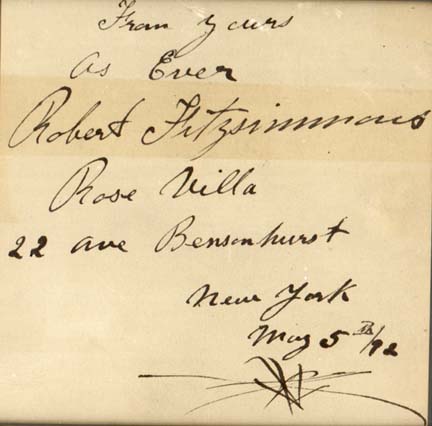 From yours
As Ever
Robert Fitzsimmons
Rose Villa
22 ave Bensonhurst
New York
May 5th/92